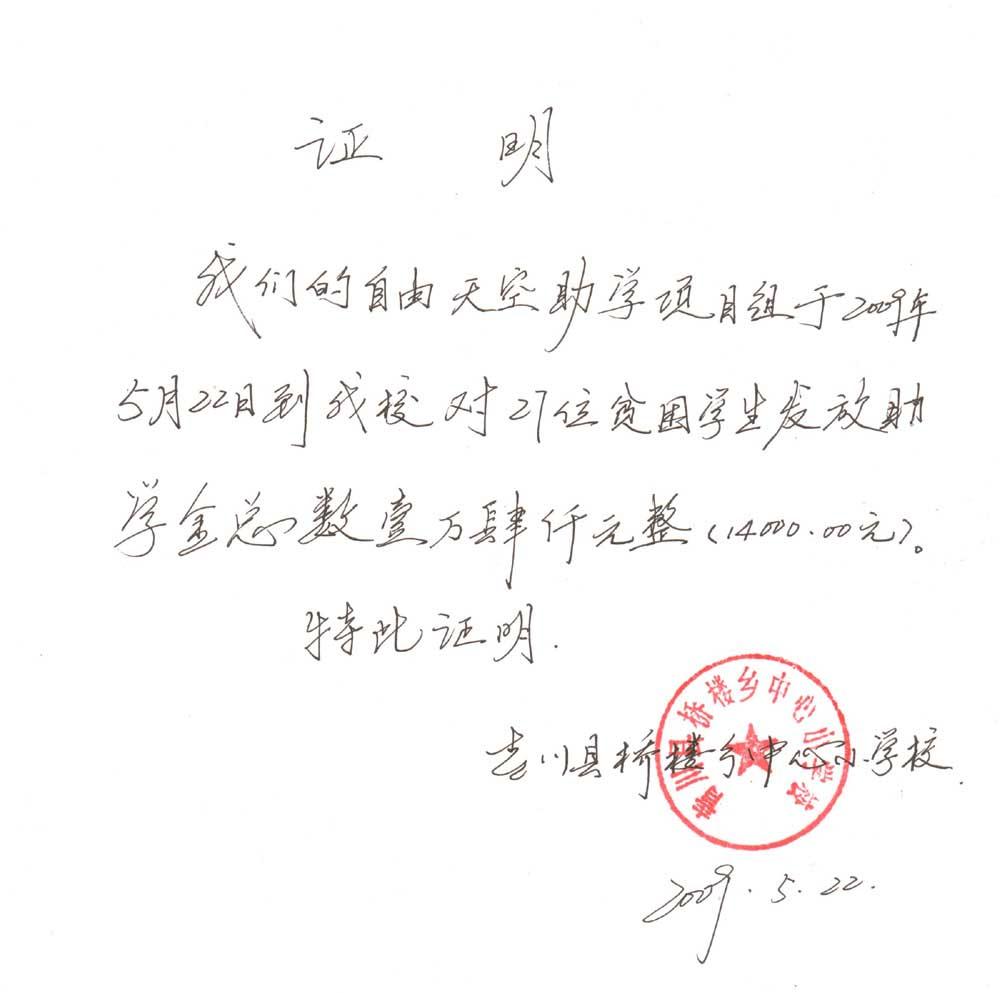 证 明
我们的自由天空助学项目组于2009年
5月22日到我校对27位贫困学生发放助
学金总数壹万肆仟元整(14000.00元)。
特此证明.
青川县桥楼乡中心小学校
青川县桥楼乡中心小学校
2009.5.22.